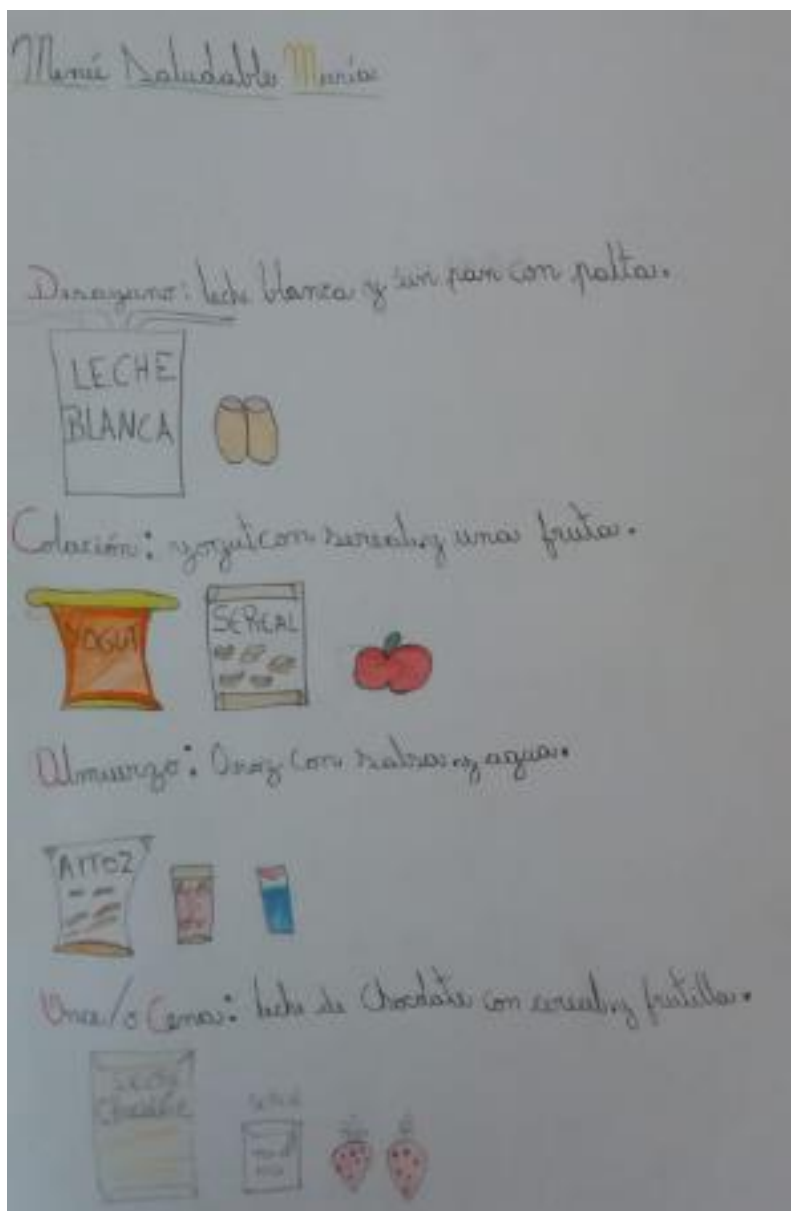 Menú Saludable María
Desayuno: leche blanca y un pan con palta.
LECHE
BLANCA
Colación: yogut con sereal y una fruta.
YOGUT
SEREAL
Almuerzo: Arroz con salsa y agua.
ARROZ
Once/o Cena: leche de Chocolate con cereal y frutilla.
Leche
Chocolate